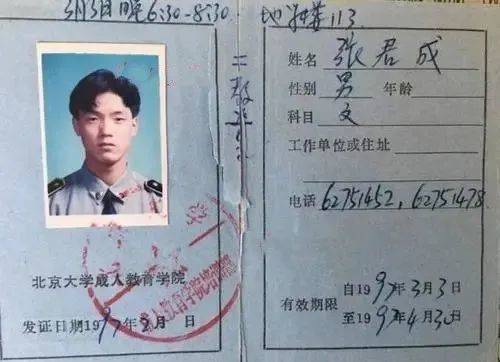 3月3日晚6:30-8:30.
地学楼113
二教
北京大学成人教育学院
发证日期1997年3月 日
姓名 张君成
性别 男 年龄
科目 文
工作单位或住址
电话 62751452, 62751478
有效期限
自1997年3月3日
至1997年4月30日